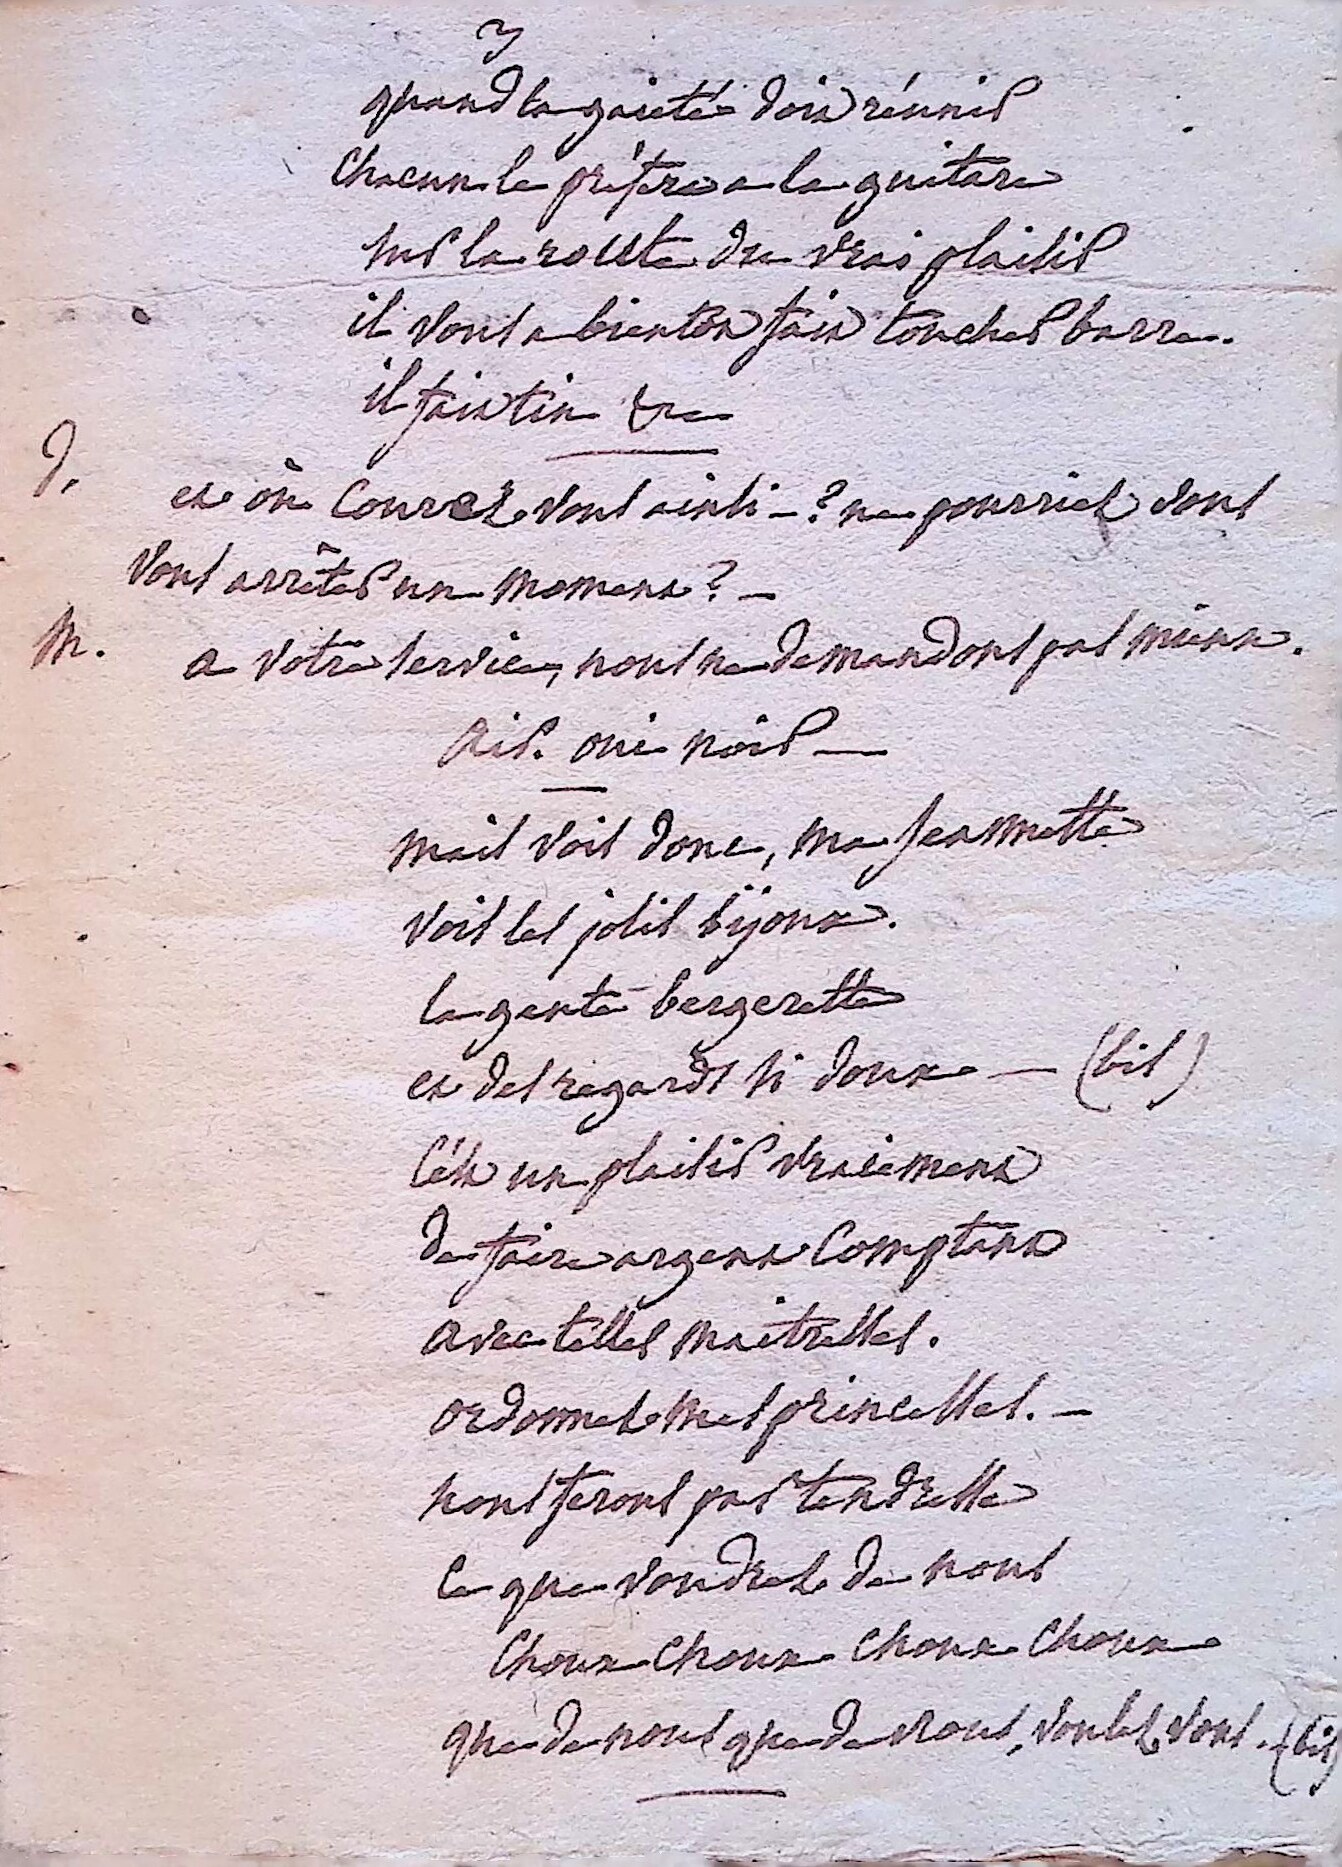 3
quand la gaieté doit réunir
Chacun le préfere a la guitare
sur la route du vrai plaisir
il vous a bientôt fait toucher barre.
il fait tin &ca
J.
et où Courez vous ainsi - ? ne pourriez vous
vous arrêter un moment ? -
M.
a votre service, nous ne demandons pas mieux.
air. oui noir —
mais vois donc, ma Jeannette
vois les jolis bijoux.
la gente bergerette
et des regards si doux — (bis)
C'est un plaisir vraiement
de faire argent Comptant
avec telles maitresses.
ordonnez mes princesses. -
nous ferons par tendresse
Ce que voudrez de nous
Choux Choux Choux Choux
que de nous que de nous, voulez vous. (bis)